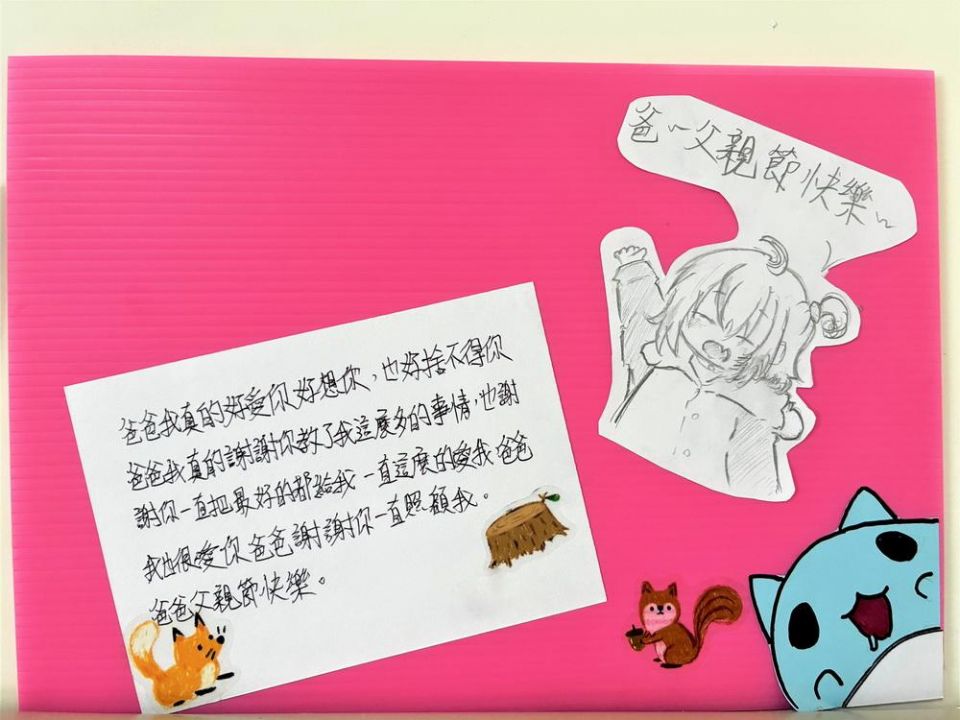 爸~父親節快樂~
爸爸我真的好愛你好想你，也好捨不得你
爸爸我真的謝謝你教了我這麼多的事情，也謝
謝你一直把最好的都給我一直這麼的愛我爸爸
我也很愛你爸爸謝謝你一直照顧我。
爸爸父親節快樂。